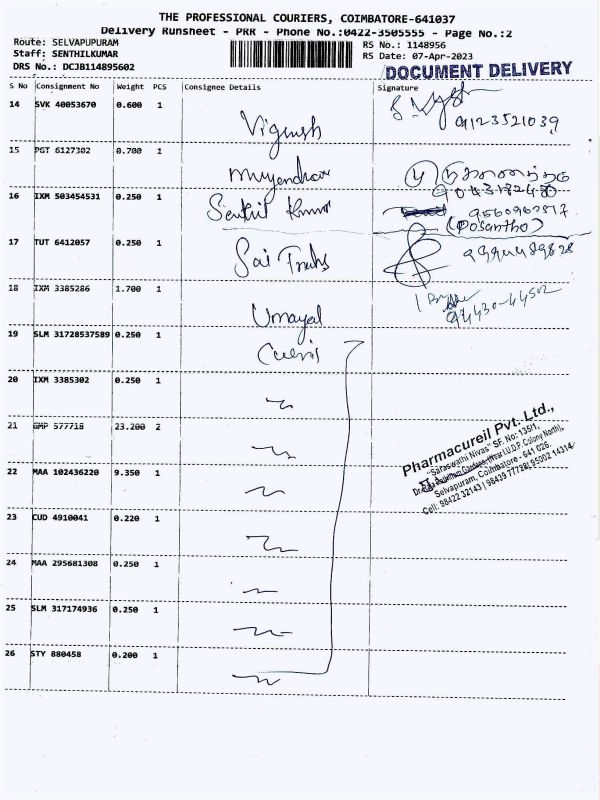 THE PROFESSIONAL COURIERS, COIMBATORE-641037
Delivery Runsheet - PRR - Phone No.:0422-3505555 - Page No.:2
Route: SELVAPUPURAM
Staff: SENTHILKUMAR
DRS No.: DCJB114895602
RS No.: 1148956
RS Date: 07-Apr-2023
DOCUMENT DELIVERY
S No Consignment No Weight PCS Consignee Details Signature
14 SVK 40053670 0.600 1
Vignesh 9123521039
15 PGT 6127302 0.700 1
16 IXM 503454531 0.250 1
Senthil Kumar
17 TUT 6412057 0.250 1
Sai
18 IXM 3385286 1.700 1
Umayal 94430-44502
19 SLM 31728537589 0.250 1
20 IXM 3385302 0.250 1
21 GMP 577718 23.200 2
22 MAA 102436220 9.350 1
23 CUD 4910041 0.220 1
24 MAA 295681308 0.250 1
25 SLM 317174936 0.250 1
26 STY 880458 0.200 1
Pharmacureil Pvt. Ltd.,
"Saraswathi Nivas" SF. No: 135/1,
(Near I.U.D.P. Colony North),
Selvapuram, Coimbatore - 641 026.
Cell: 98422 32143 | 98439 77728 | 95002 14314